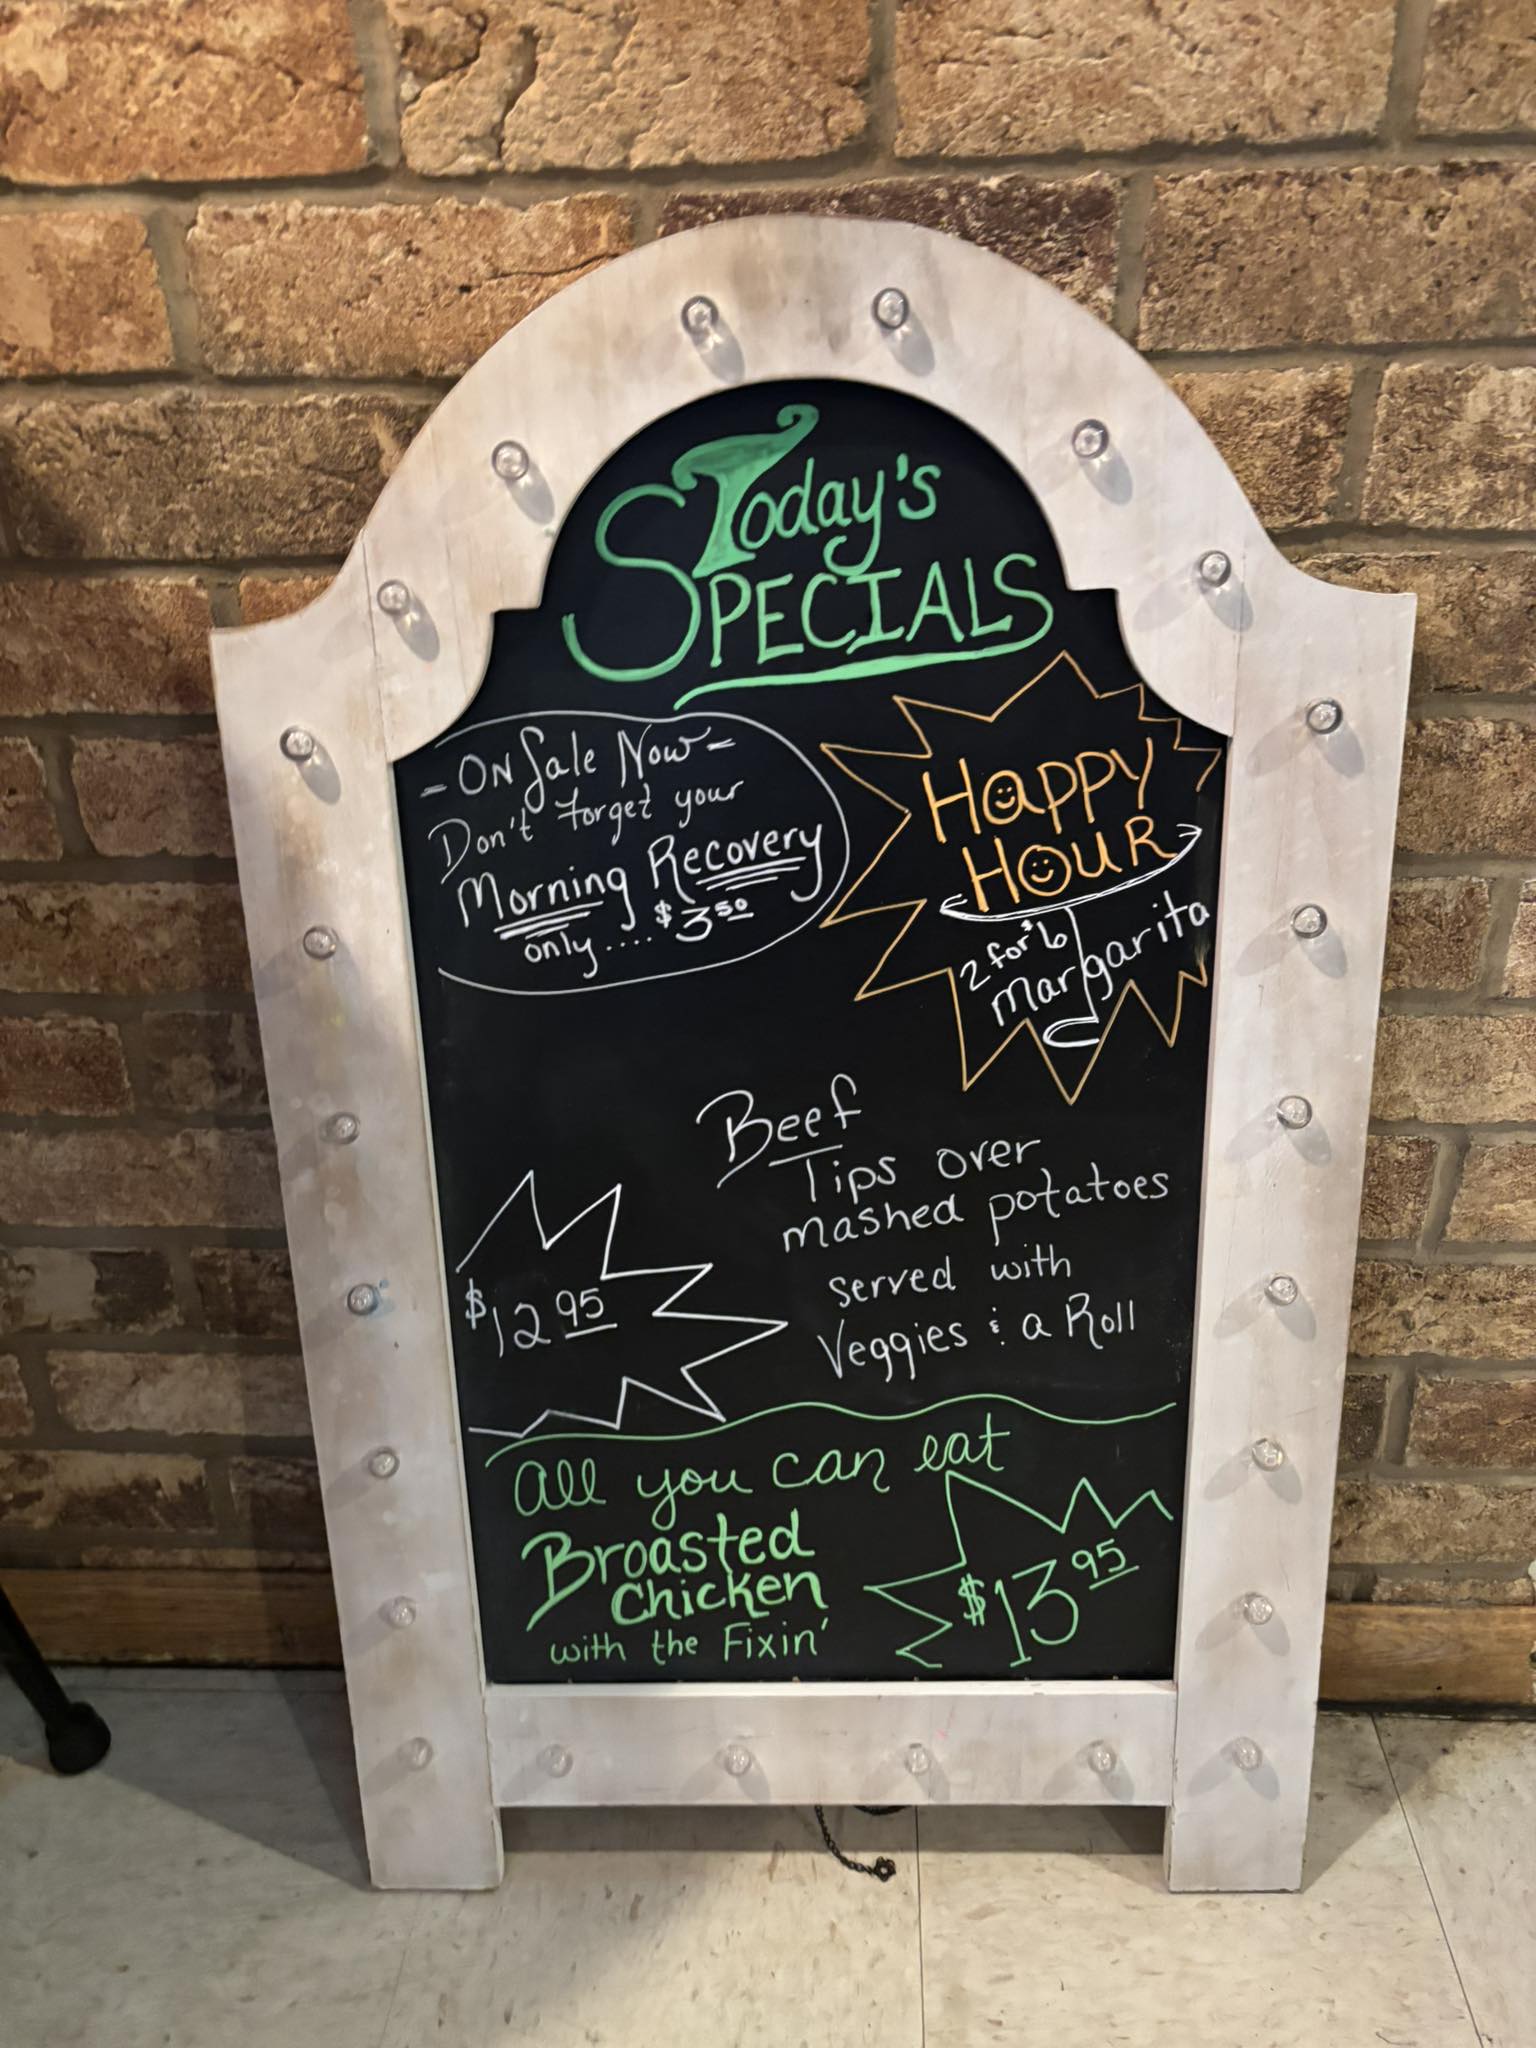 Today's
SPECIALS
- ON Sale Now -
Don't forget your
Morning Recovery
only.....$3.50
HAPPY
HOUR
2 for $6
margarita
Beef
Tips over
mashed potatoes
served with
Veggies & a Roll
$12.95
All you can eat
Broasted
Chicken
with the Fixin'
$13.95